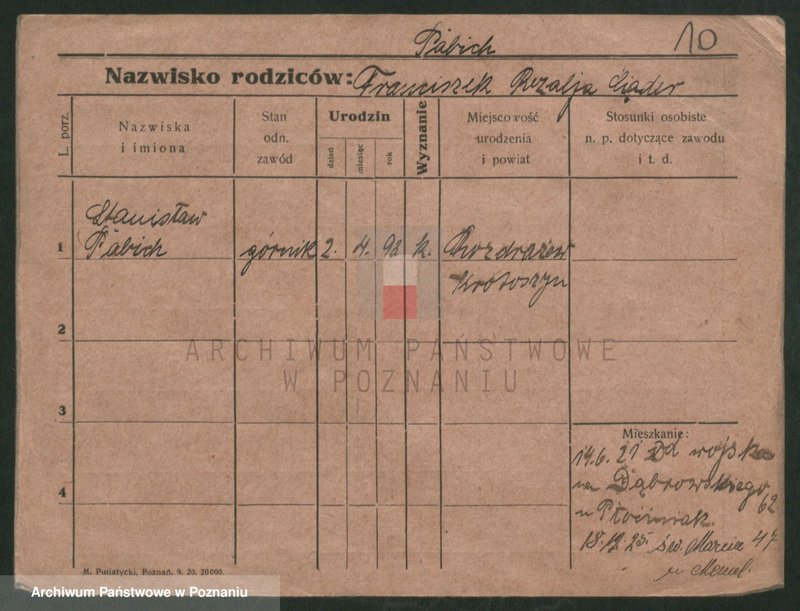 Pabich 10
Nazwisko rodziców: Franciszek Rozalja
L. porz.
Nazwiska
i imiona
Stan
odn.
zawód
Urodzin
dzień
miesiąc
rok
Wyznanie
Miejscowość
urodzenia
i powiat
Stosunki osobiste
n. p. dotyczące zawodu
i t. d.
Stanisław
1 Pabich górnik 2. 4. 93 k. Rozdrażew
Krotoszyn
2
ARCHIWUM PAŃSTWOWE
W POZNANIU
3
Mieszkanie:
19.6.21 Od wojska
4 na Dąbrowskiego
62
u
18.12.25. św. Marcin 47
u
M. Putiatycki, Poznań. 9. 20. 20000.
Archiwum Państwowe w Poznaniu